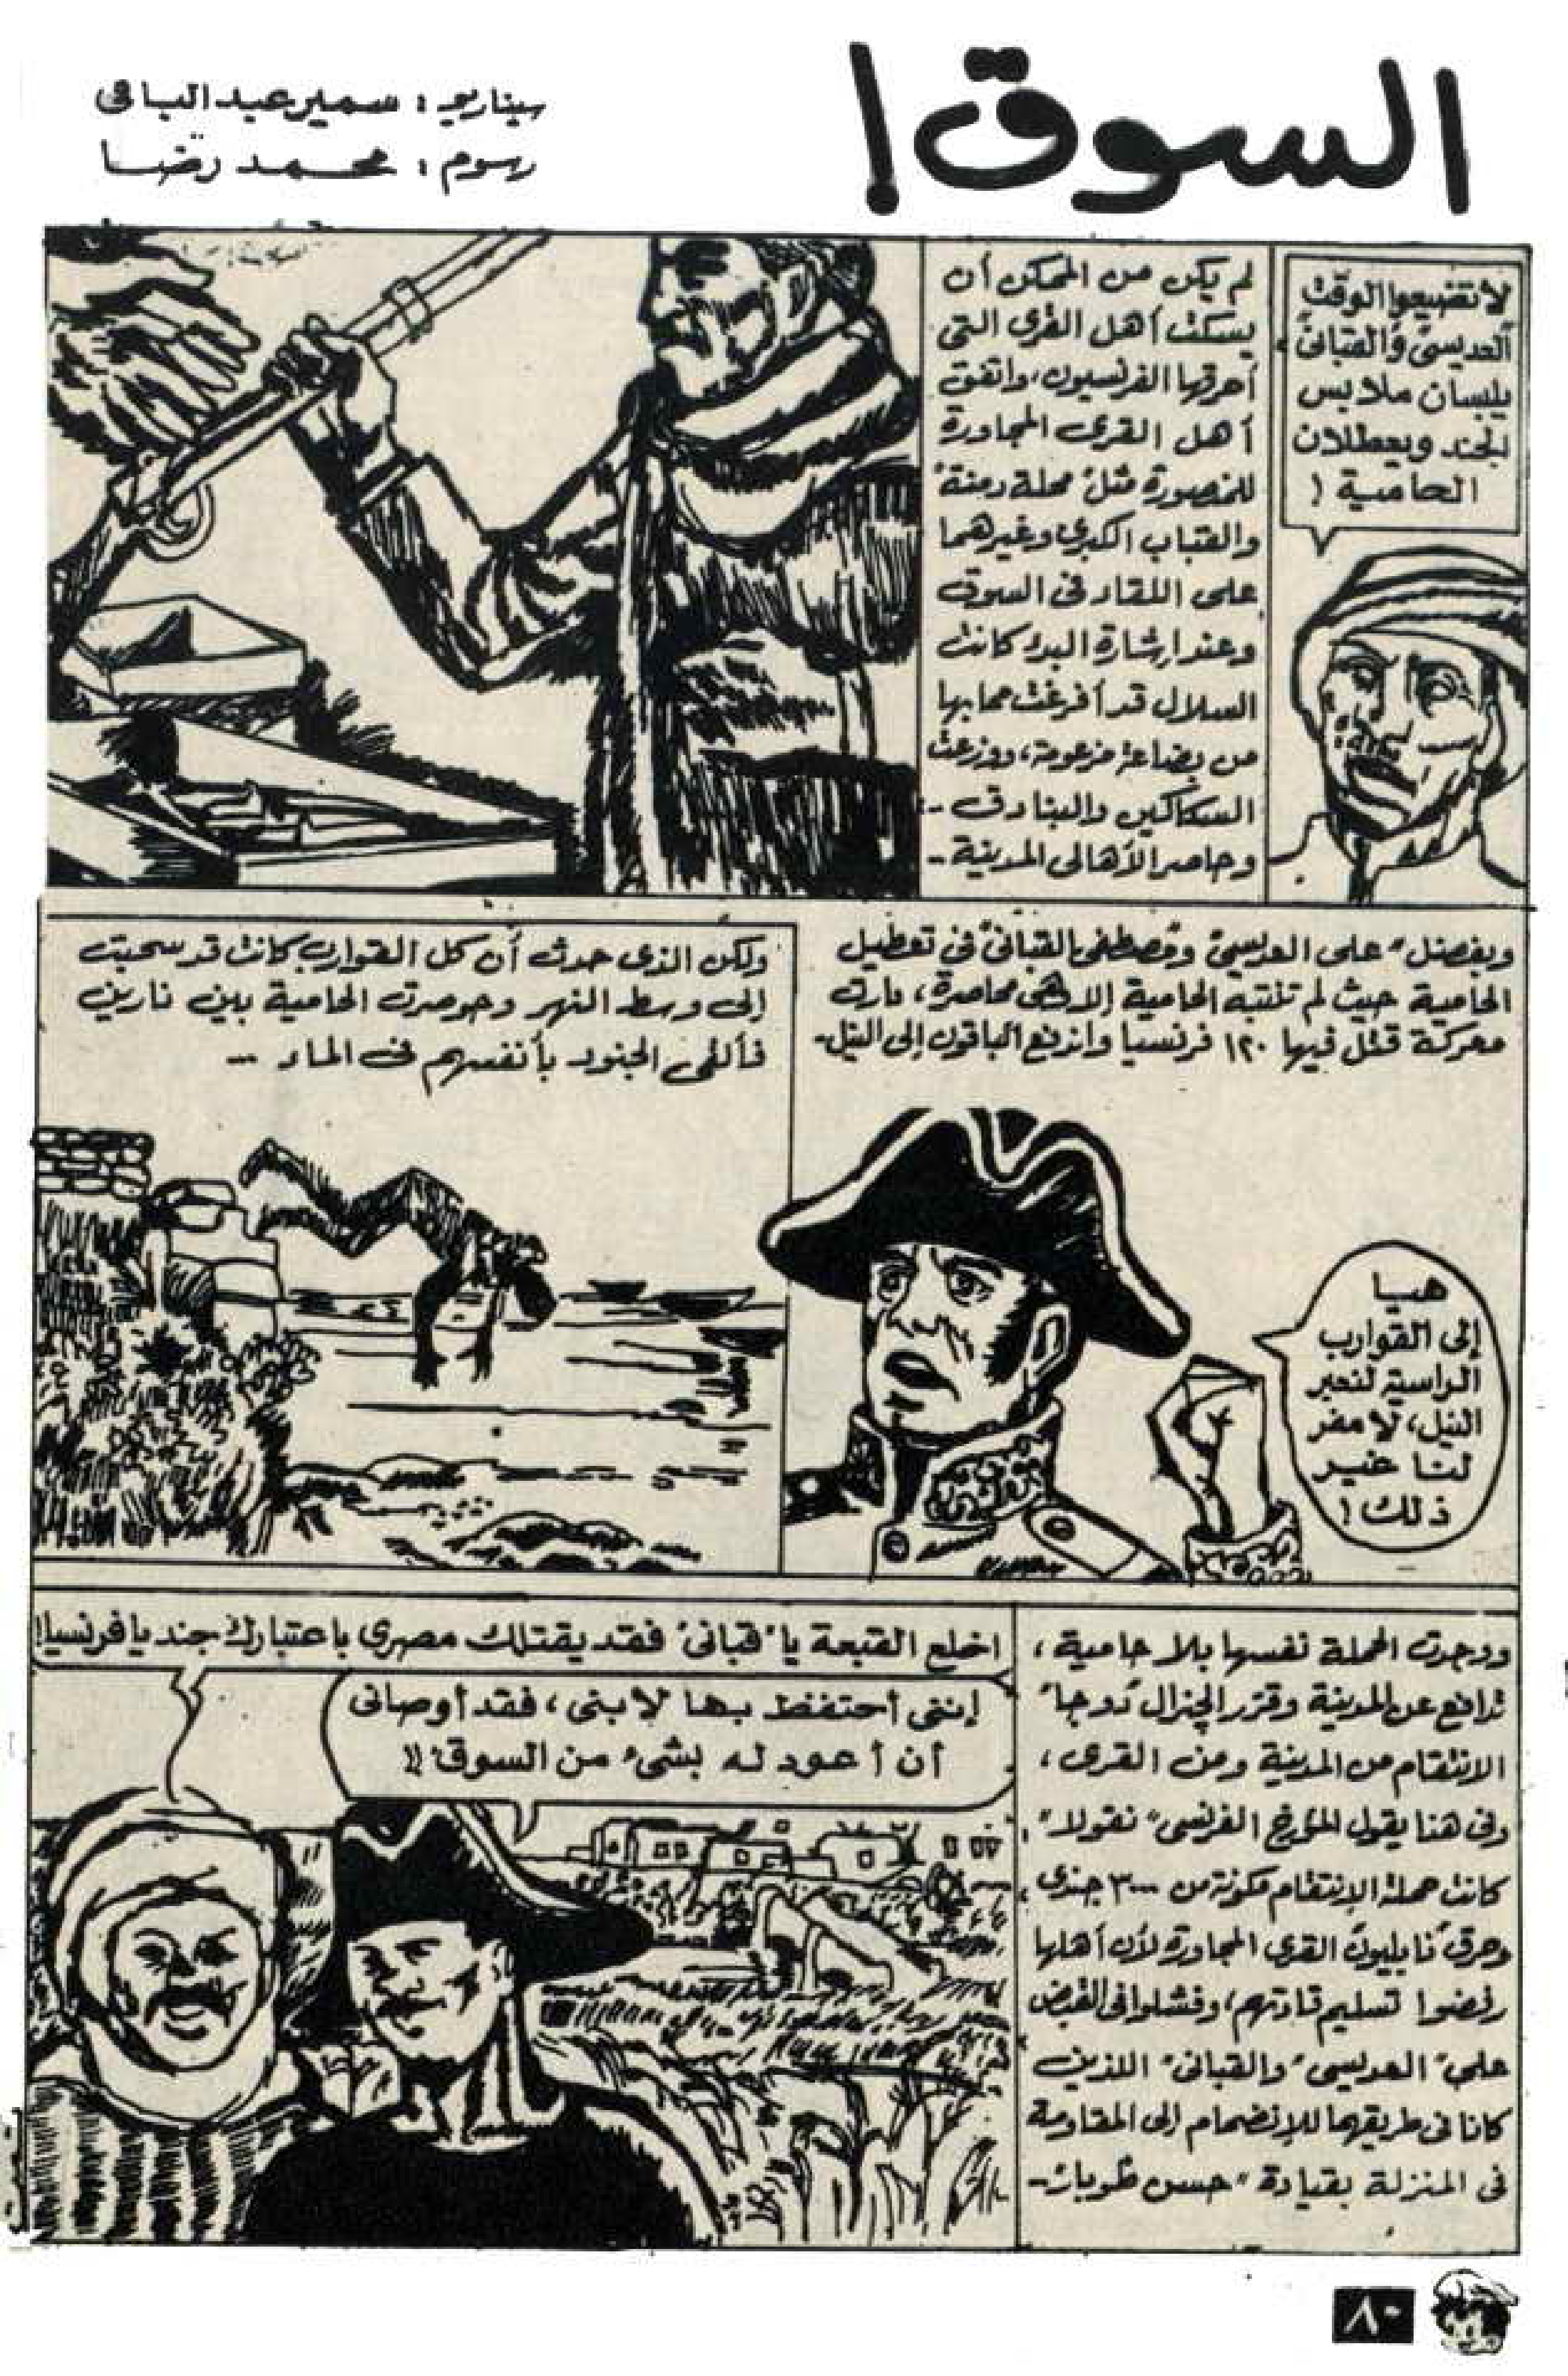 السوق!
سيناريو : سمير عبد الباقى
رسوم : محمد رضا
لا تضيعوا الوقت
"العديسى" و"القبانى"
يلبسان ملابس
الجند ويعطلان
الحامية !
لم يكن من الممكن أن
يسكت أهل القرى التى
أحرقها الفرنسيون، واتفق
أهل القرى المجاورة
للمنصورة مثل "محلة دمنة"
والقباب الكبرى وغيرهما
على اللقاء فى السوق
وعند إشارة البدء كانت
السلال قد أفرغت مما بها
من بضاعة مزعومة، ووزعت
السكاكين والبنادق ..
وحاصر الأهالى المدينة ..
وبفضل "على العديسى" و"مصطفى القبانى" فى تعطيل
الحامية حيث لم تنتبه الحامية إلا وهى محاصرة، دارت
معركة قتل فيها ١٢٠ فرنسيا واندفع الباقون إلى النيل..
هيا
إلى القوارب
الراسية لنعبر
النيل، لا مفر
لنا غير
ذلك !
ولكن الذى حدث أن كل القوارب كانت قد سحبت
إلى وسط النهر وحوصرت الحامية بين نارين
فألقى الجنود بأنفسهم فى الماء ...
ووجدت الحملة نفسها بلا حامية ،
تدافع عن المدينة وقرر الجنرال "دوجا"
الانتقام من المدينة ومن القرى ،
وفى هذا يقول المؤرخ الفرنسى "نقولا"
كانت حملة الإنتقام مكونة من ٣٠٠٠ جندى
وحرق "نابليون" القرى المجاورة لأن أهلها
رفضوا تسليم قادتهم، وفشلوا فى القبض
على "العديسى" و"القبانى" اللذين
كانا فى طريقهما للإنضمام إلى المقاومة
فى المنزلة بقيادة "حسن طوبار" ..
اخلع القبعة يا "قبانى" فقد يقتلك مصرى باعتبارك جنديا فرنسيا!
إننى أحتفظ بها لابنى ، فقد أوصانى
أن أعود له بشىء من السوق !!
٨٠